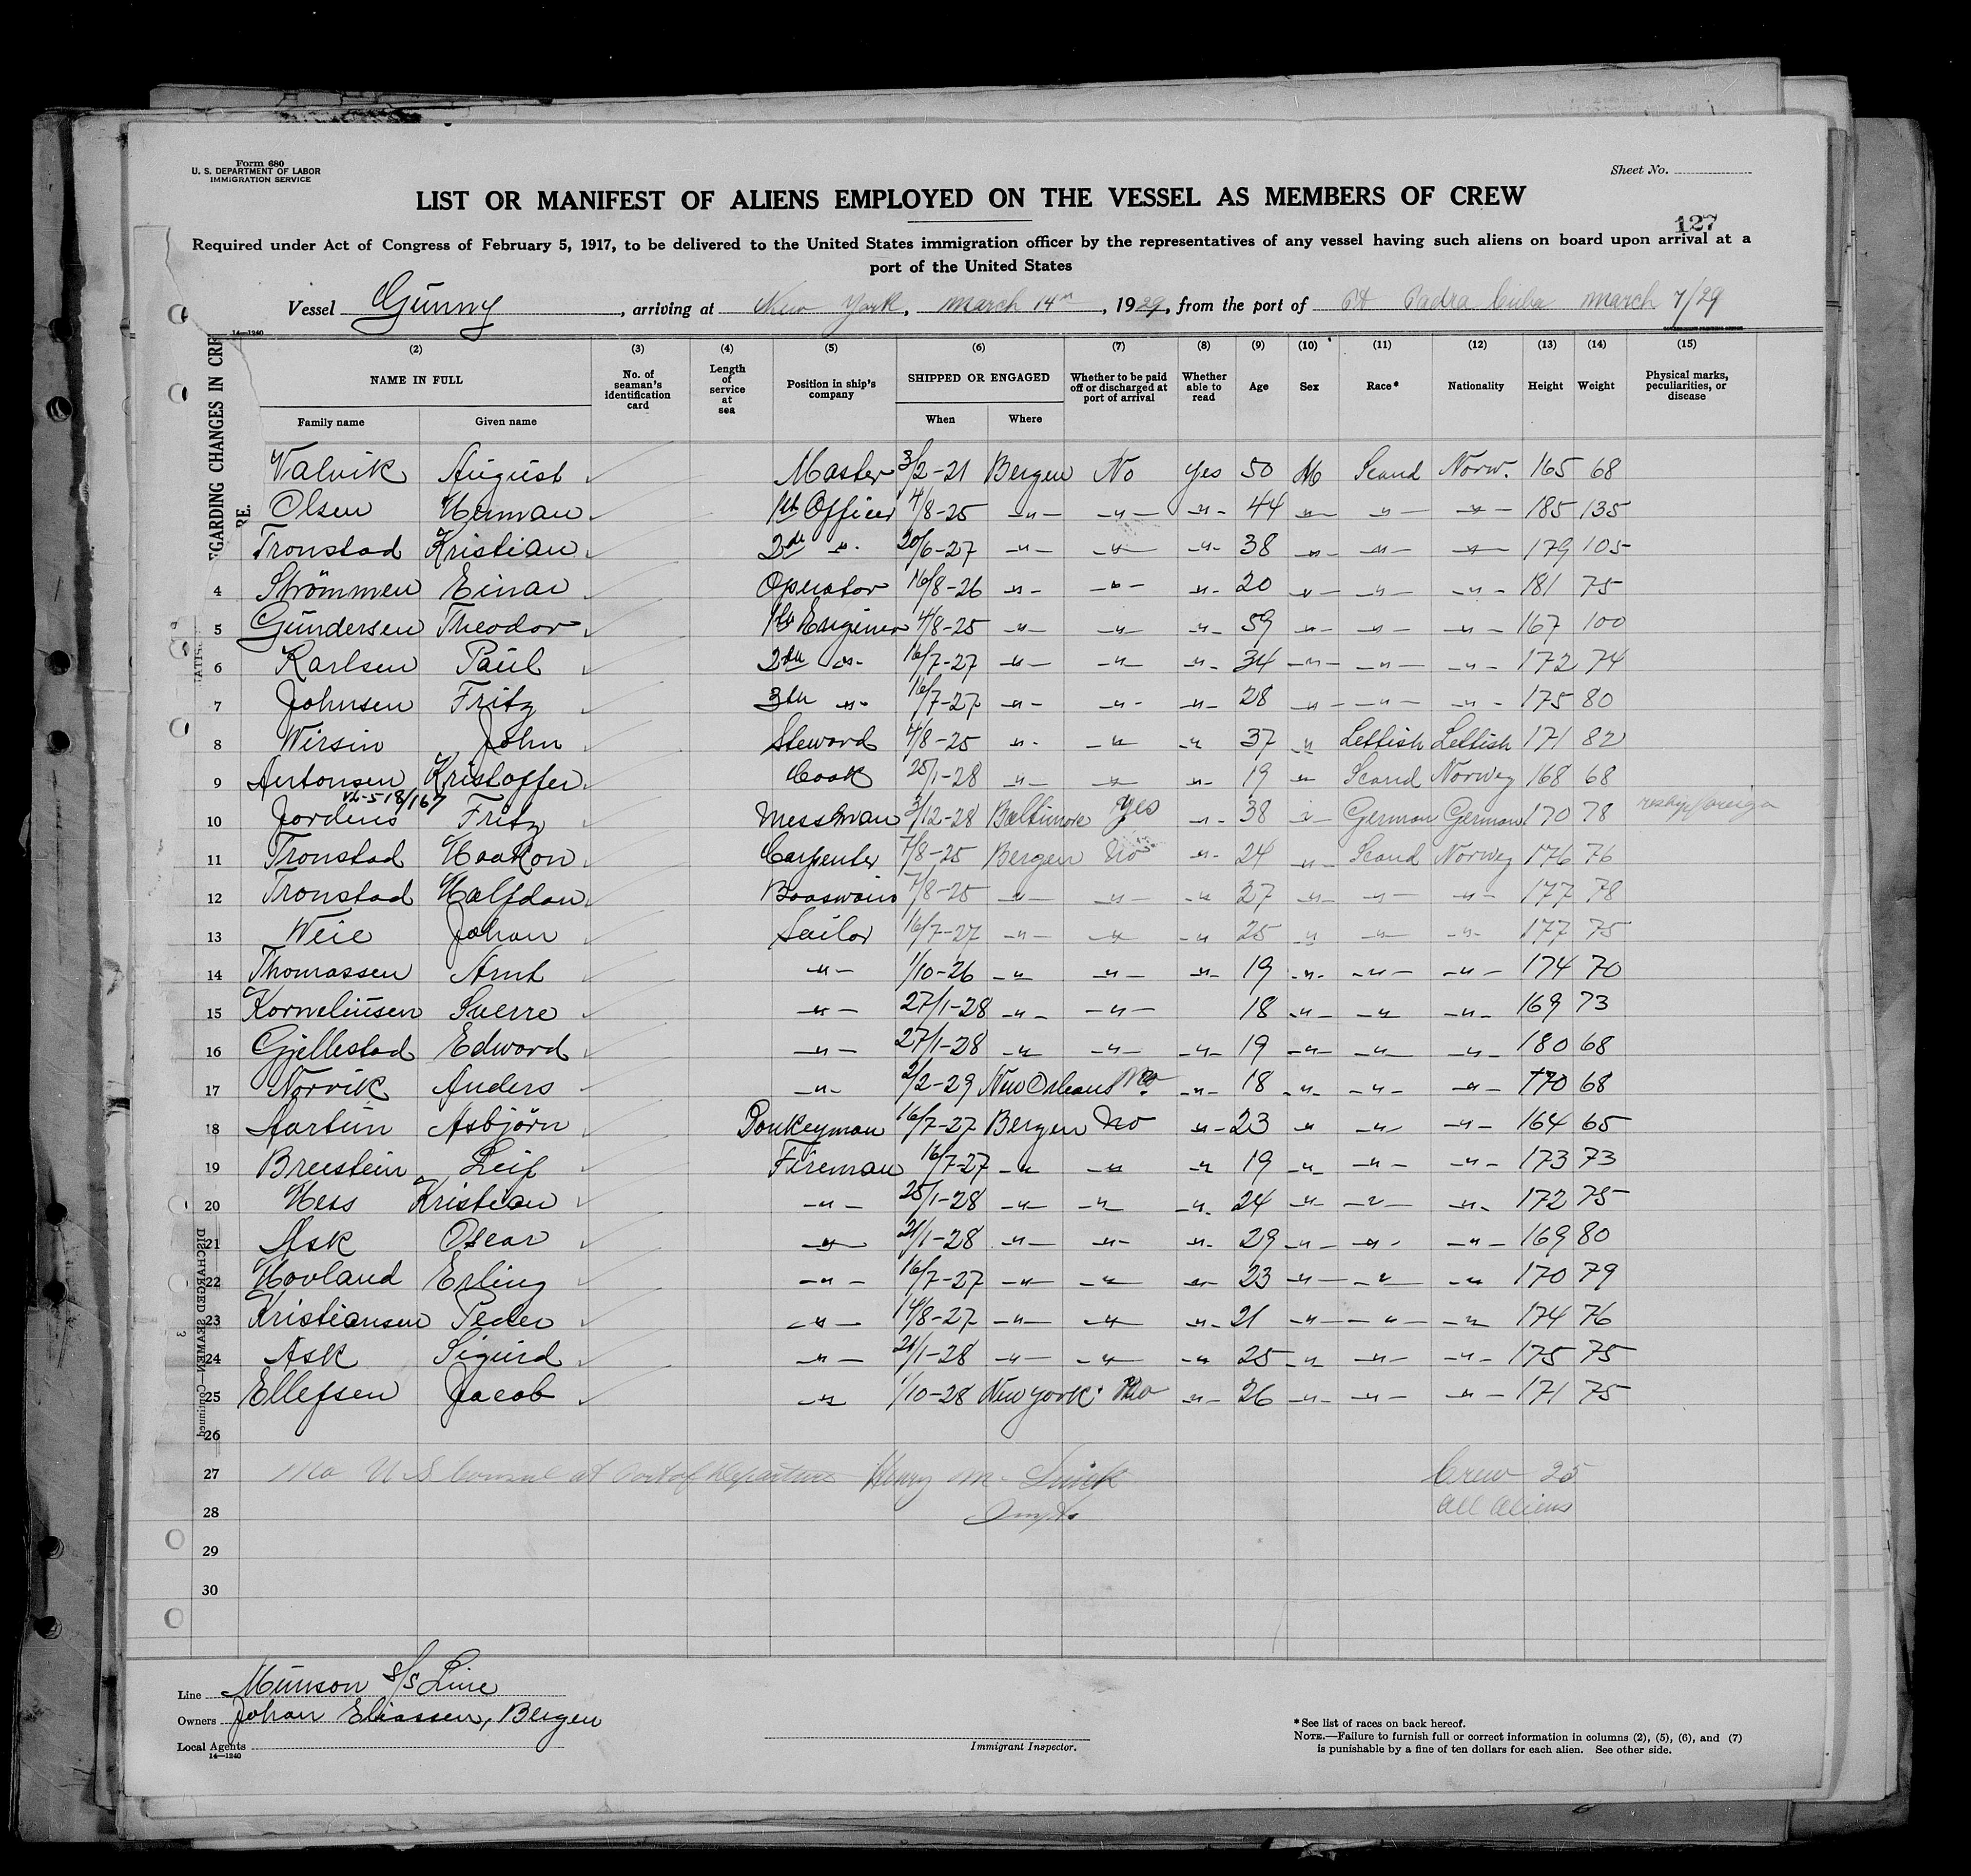 Form 680
U. S. DEPARTMENT OF LABOR
IMMIGRATION SERVICE
Sheet No.
LIST OR MANIFEST OF ALIENS EMPLOYED ON THE VESSEL AS MEMBERS OF CREW
127
Required under Act of Congress of February 5, 1917, to be delivered to the United States immigration officer by the representatives of any vessel having such aliens on board upon arrival at a
port of the United States
Vessel Gunny, arriving at New York, March 14th, 1929, from the port of Pt Padra Cuba March 7/29
14—1240
(2) (3) (4) (5) (6) (7) (8) (9) (10) (11) (12) (13) (14) (15)
NAME IN FULL No. of seaman's identification card Length of service at sea Position in ship's company SHIPPED OR ENGAGED Whether to be paid off or discharged at port of arrival Whether able to read Age Sex Race* Nationality Height Weight Physical marks, peculiarities, or disease
Family name Given name When Where
Valvik August Master 3/2-21 Bergen No Yes 50 M Scand Norw. 165 68
Olsen Herman 1st Officer 4/8-25 -"- -"- -"- 44 -"- -"- -"- 185 135
Tronstad Kristian 2de -"- 20/6-27 -"- -"- -"- 38 -"- -"- -"- 179 105
4 Strömmen Einar Operator 16/8-26 -"- -"- -"- 20 -"- -"- -"- 181 75
5 Gundersen Theodor 1st Enginer 4/8-25 -"- -"- -"- 59 -"- -"- -"- 167 100
6 Karlsen Paul -"- 16/7-27 -"- -"- -"- 34 -"- -"- -"- 172 74
7 Johnsen Fritz -"- 16/7-27 -"- -"- -"- 28 -"- -"- -"- 175 80
8 Wirsin John Steward 4/8-25 -"- -"- -"- 37 -"- Lettish Lettish 171 82
9 Antonsen Kristoffer Cook 25/1-28 -"- -"- -"- 19 -"- Scand Norweg 168 68
10 Jordens Fritz Messman 3/12-28 Baltimore Yes -"- 38 -"- German German 170 78
11 Tronstad Haakon Carpenter 7/8-25 Bergen No -"- 24 -"- Scand Norweg 176 76
12 Tronstad Halfdan Booswain 7/8-25 -"- -"- -"- 27 -"- -"- -"- 177 78
13 Weie Johan Sailor 16/7-27 -"- -"- -"- 25 -"- -"- -"- 177 75
14 Thomassen Arnt -"- 1/10-26 -"- -"- -"- 19 -"- -"- -"- 174 70
15 Korneliusen Sverre -"- 27/1-28 -"- -"- 18 -"- -"- -"- 169 73
16 Gjellestad Edward -"- 27/1-28 -"- -"- -"- 19 -"- -"- -"- 180 68
17 Norvik Anders -"- 2/2-29 New Orleans No -"- 18 -"- -"- -"- 170 68
18 Aartun Asbjörn Donkeyman 16/7-27 Bergen No -"- 23 -"- -"- -"- 164 65
19 Breistein Leif Fireman 16/7-27 -"- -"- -"- 19 -"- -"- -"- 173 73
20 Hess Kristian -"- 25/1-28 -"- -"- -"- 24 -"- -"- -"- 172 75
21 Ask Oscar -"- 21/1-28 -"- -"- -"- 29 -"- -"- -"- 169 80
22 Hovland Erling -"- 16/7-27 -"- -"- -"- 23 -"- -"- -"- 170 79
23 Kristiansen Peder -"- 14/8-27 -"- -"- -"- 21 -"- -"- -"- 174 76
24 Ask Sigurd -"- 21/1-28 -"- -"- -"- 25 -"- -"- -"- 175 75
25 Ellefsen Jacob -"- 1/10-28 New York No -"- 26 -"- -"- -"- 171 75
26
27 No U S Consul at Port of Departure Henry M. Crew 25
28 All Aliens
29
30
Line Munson S/S Line
Owners Johan Eliassen, Bergen
Local Agents
14—1240
Immigrant Inspector.
*See list of races on back hereof.
NOTE.—Failure to furnish full or correct information in columns (2), (5), (6), and (7)
is punishable by a fine of ten dollars for each alien. See other side.